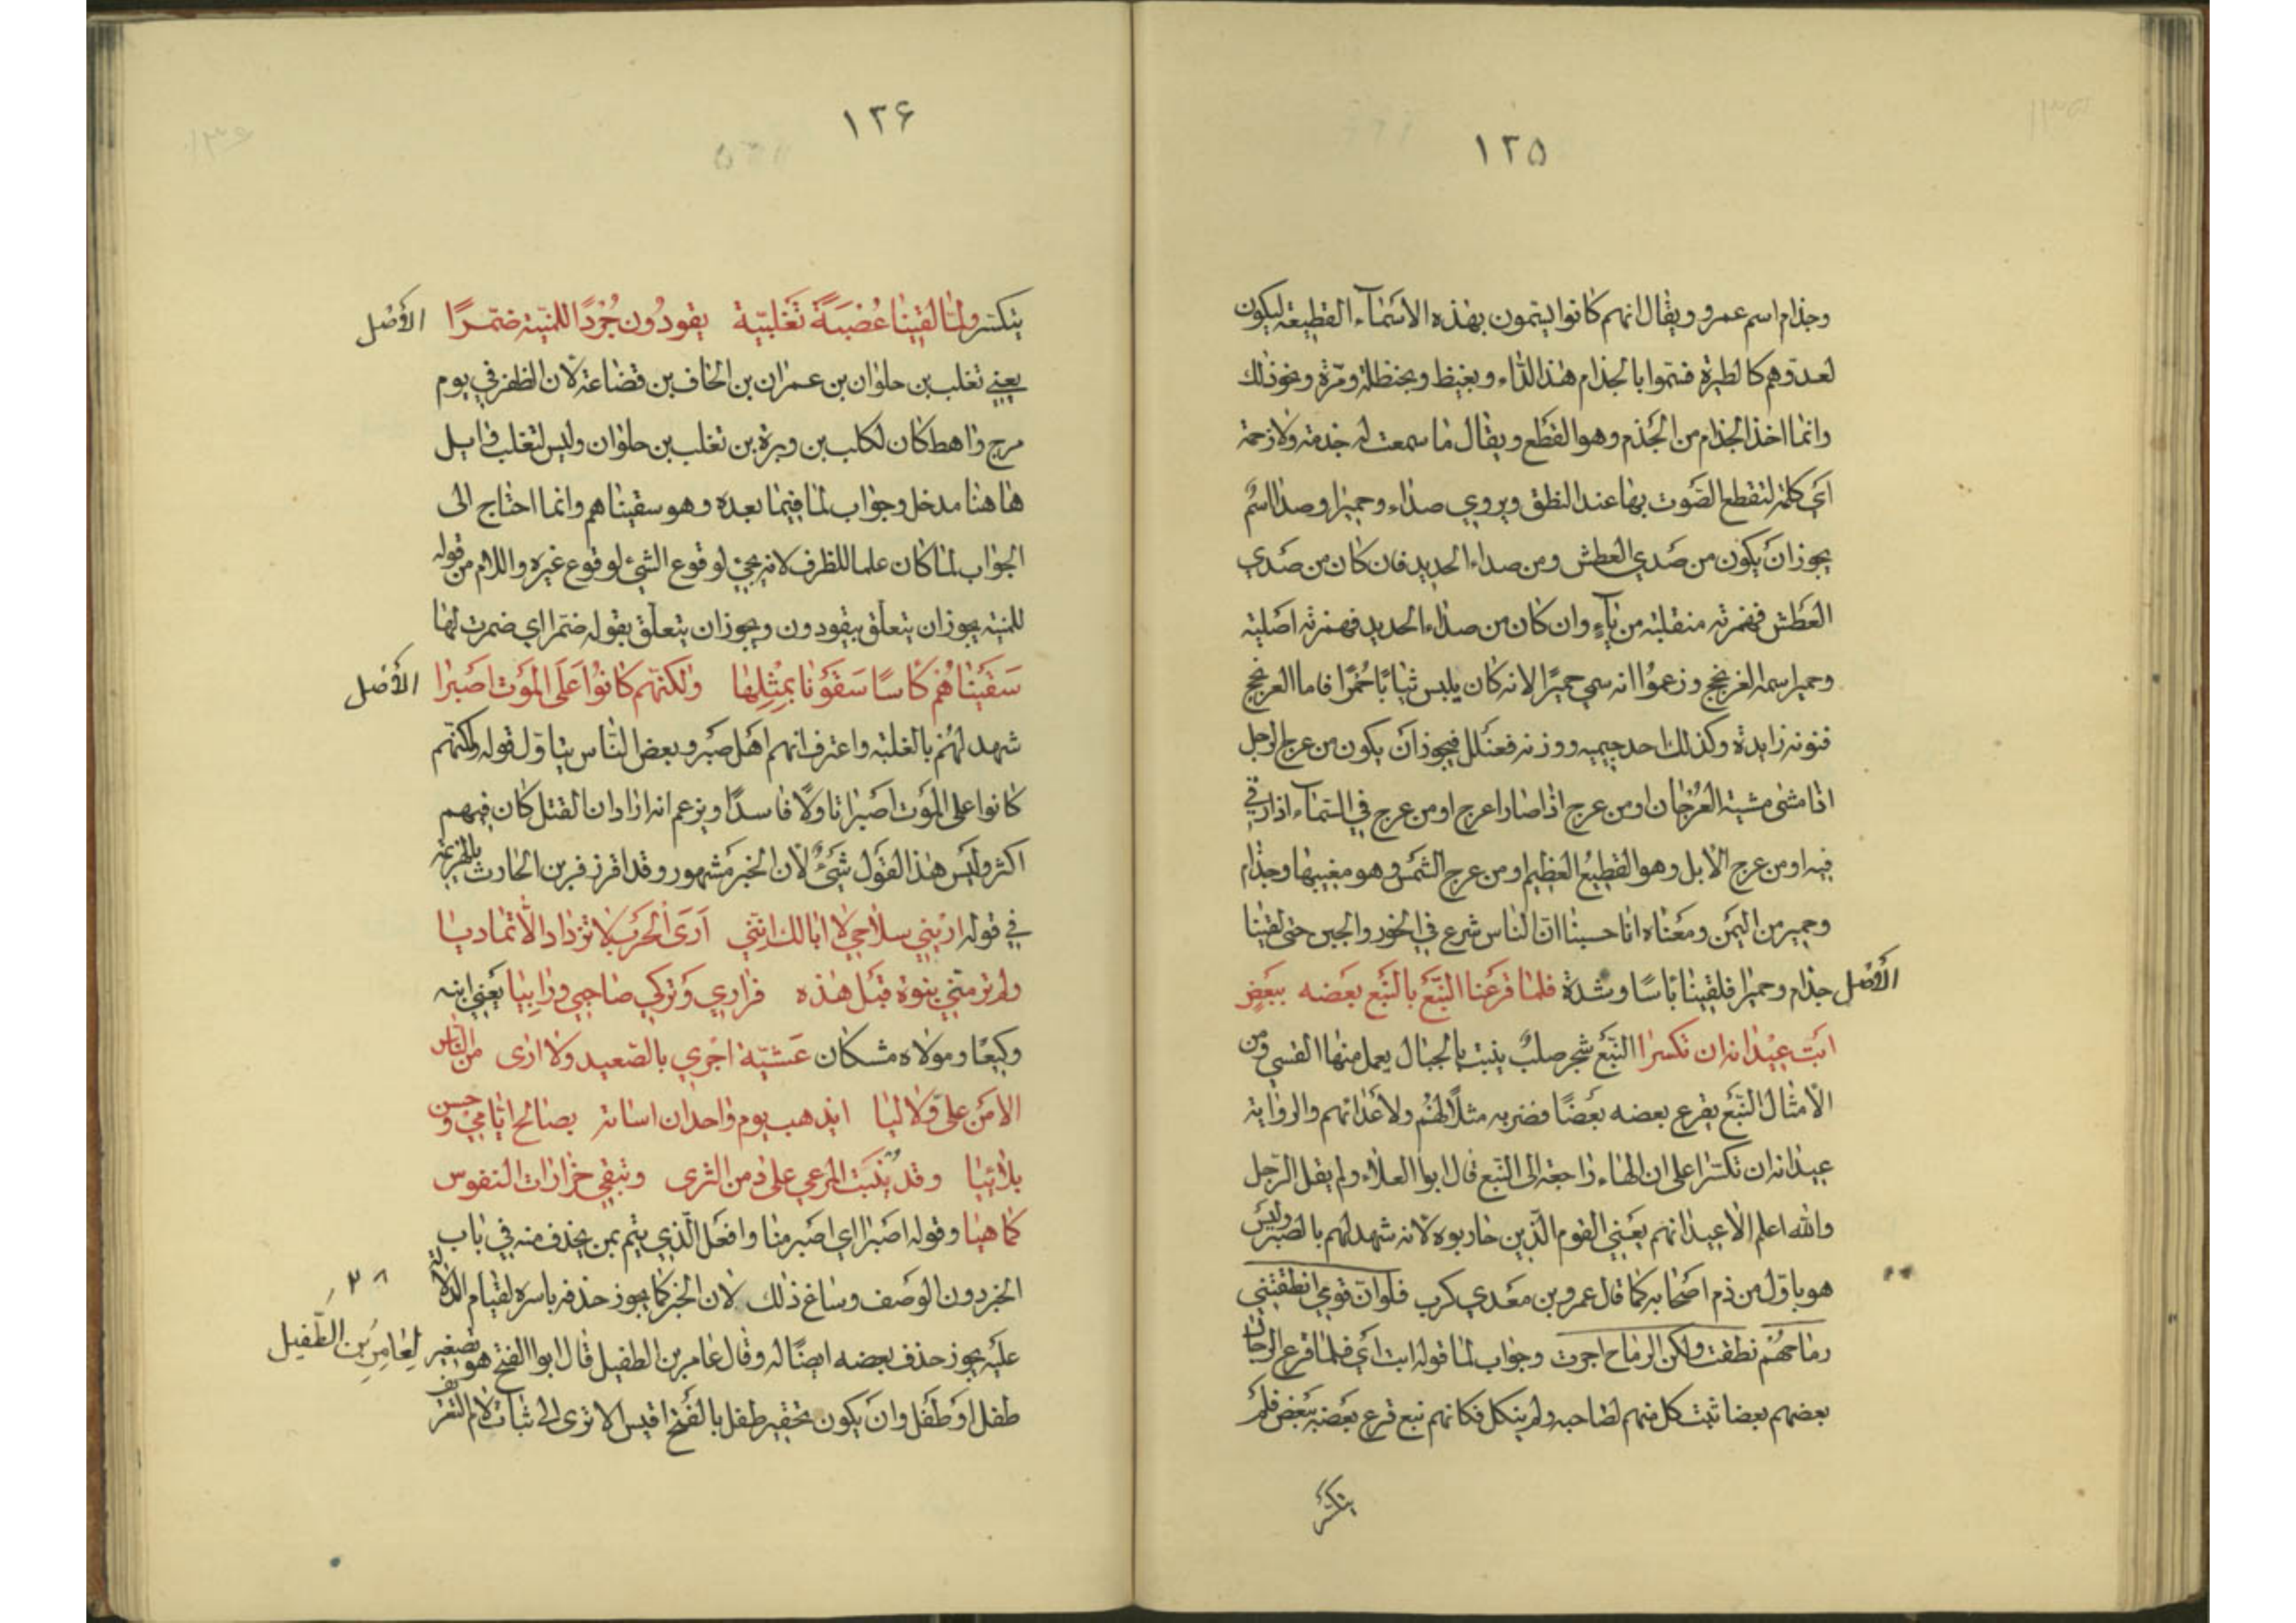 ١٢٥
وجذام اسم عمرو ويقال انهم كانوا يتسمون بهذه الاسماء القطيعة ليكون
لعدوهم كالطيرة فسموا بالجذام هذا الداء وبغيظ وبحنظلة ومرّة ونحو ذلك
وانما اخذ الجذام من الجَذم وهو القَطع ويقال ما سمعت له جذمة ولا زحمة
اَي كلمة لتقطع الصَّوت بها عند النطق ويروي صداء وحميرا وصداء اسمٌ
يجوز انَ يكون من صَدي العطش ومن صداء الحديد فان كان من صَدي
العَطش فهمزته منقلبة من ياءٍ وان كان من صداء الحديد فهمزته اصَلية
وحمير اسمه العرنجج وزعمُوا انه سمي حميرًا لانه كان يلبس ثيابًا حُمُرًا فاما العرنجج
فنونه زايدة وكذلك احد جيميه ووزنه فعنَلل فيجوز انَ يكون من عرج الرجل
اذا مشى مشية العُرجَان او من عرج اذا صار اعرج او من عرج في السمآء اذا رقي
فيه او من عرج الابل وهو القطيعُ العظيم ومن عرج الشمَس وهو مغيبها وجذام
وحمير من اليَمن ومعَناه انا حسبنا انّ الناس شرع في الخور والجبن حتى لقينا
جذام وحميرا فلقينا باسًا وشدة فلما قرَعنا النَّبَع بالنَّبَع بعَضه ببَعَضٍ الأصَل
ابَت عيْدانه ان تكسرا النَّبَع شجر صلبٌ ينبت بالجبال يعمل منها القسي ومن
الأمثال النَّبَع يقرع بعضه بعَضًا فضربه مثلًا لهُم ولاعَدائهم والرواية
عيدانه ان تكسَّرا على ان الهاء راجعة الى النَّبع قال ابو العلاء ولم يقل الرَّجل
والله اعلم الا عيدانهم يعَني القوم الَّذين حاربوه لانه شهد لهم بالصَّبر وليسَ
هو باوّل من ذم اصَحابه كما قال عمرو بن معَدي كرب فلو انّ قومي انطقتني
رماحهُم نطقت ولكن الرماح اجرت وجواب لما قوله ابت اَي فلما قرع
بعضهم بعضا ثبت كل منهم لصاحبه ولم ينكل فكانهم نبع قرع بعَضه ببَعض فلم
يتكسَّر
١٢۶
يتكسّر ولمّا لقينا عُصَبَةً تَغلبيّة يقودُون جُرْدًا للمنيّة ضمّرًا الأصَل
يعنى تغلب بن حلوان بن عمران بن الحاف بن قضاعة لان الظفر في يوم
مرج راهط كان لكلب بن وبرة بن تغلب بن حلوان وليس لتغلب وايل
ها هنا مدخل وجواب لما فيما بعده وهو سقيناهم وانما احتاج الى
الجواب لما كان علما للظرف لانه يجئ لوقوع الشئ لوقوع غيره واللام من قوله
للمنية يجوز ان يتعلّق بيقودون ويجوز ان يتعلّق بقوله ضمّرا اي ضمرت لها
سَقَيْنَاهُم كاسًا سَقَوْنا بمِثْلِها ولكنّهم كانوُا عَلَى المَوَت اصَبرَا الأصَل
شهد لهُم بالغلبة واعترف انهم اهَل صبَر وبعض النّاس يتاوّل قوله ولكنّهم
كانوا على المَوت اصَبرا تاولًا فاسدًا ويزعم انه اراد ان القتل كان فيهم
اكثر وليَس هذا القوَل شيَئ لأن الخبر مَشهور وقد اقر زفر بن الحارث بالهزيمة
في قوله ارَيني سلاحي لا ابا لك انّني ارَىَ الحَرَب لا تزداد الّا تماديا
ولم تر منّي نبوة قبَل هذه فراري وَتَركي صاحبي ورَائيا يعَني ابنه
وكيعًا ومولاه مشكان عَشيّة اجْري بالصَّعيد ولا ارى من النّاس
الا مَن عليّ ولا ليا ايذهب يوم واحد ان اساته بصالح ايّامي وحسن
بلائيا وقد ينَبَت المرَعي على دمن الثرى وتبقي حزازات النفوس
كما هيا وقوله اصَبرا اي اصَبر منا وافعَل الَّذي يتم بمن يحذف منه في باب
الخبر دون الوصَف وساغ ذلك لان الخبر كما يجوز حذفه باسره لقيام الدلالة
عليَه يجوز حذف بعضه ايضًا له وقال عامر بن الطفيل قال ابو الفتح هو تصغير
لعَامِرِ بن الطّفيل
طفل او طَفَل وانَ يكون تحقير طفل بالفَتح اقيس الا ترى الى ثبات لام التعريف